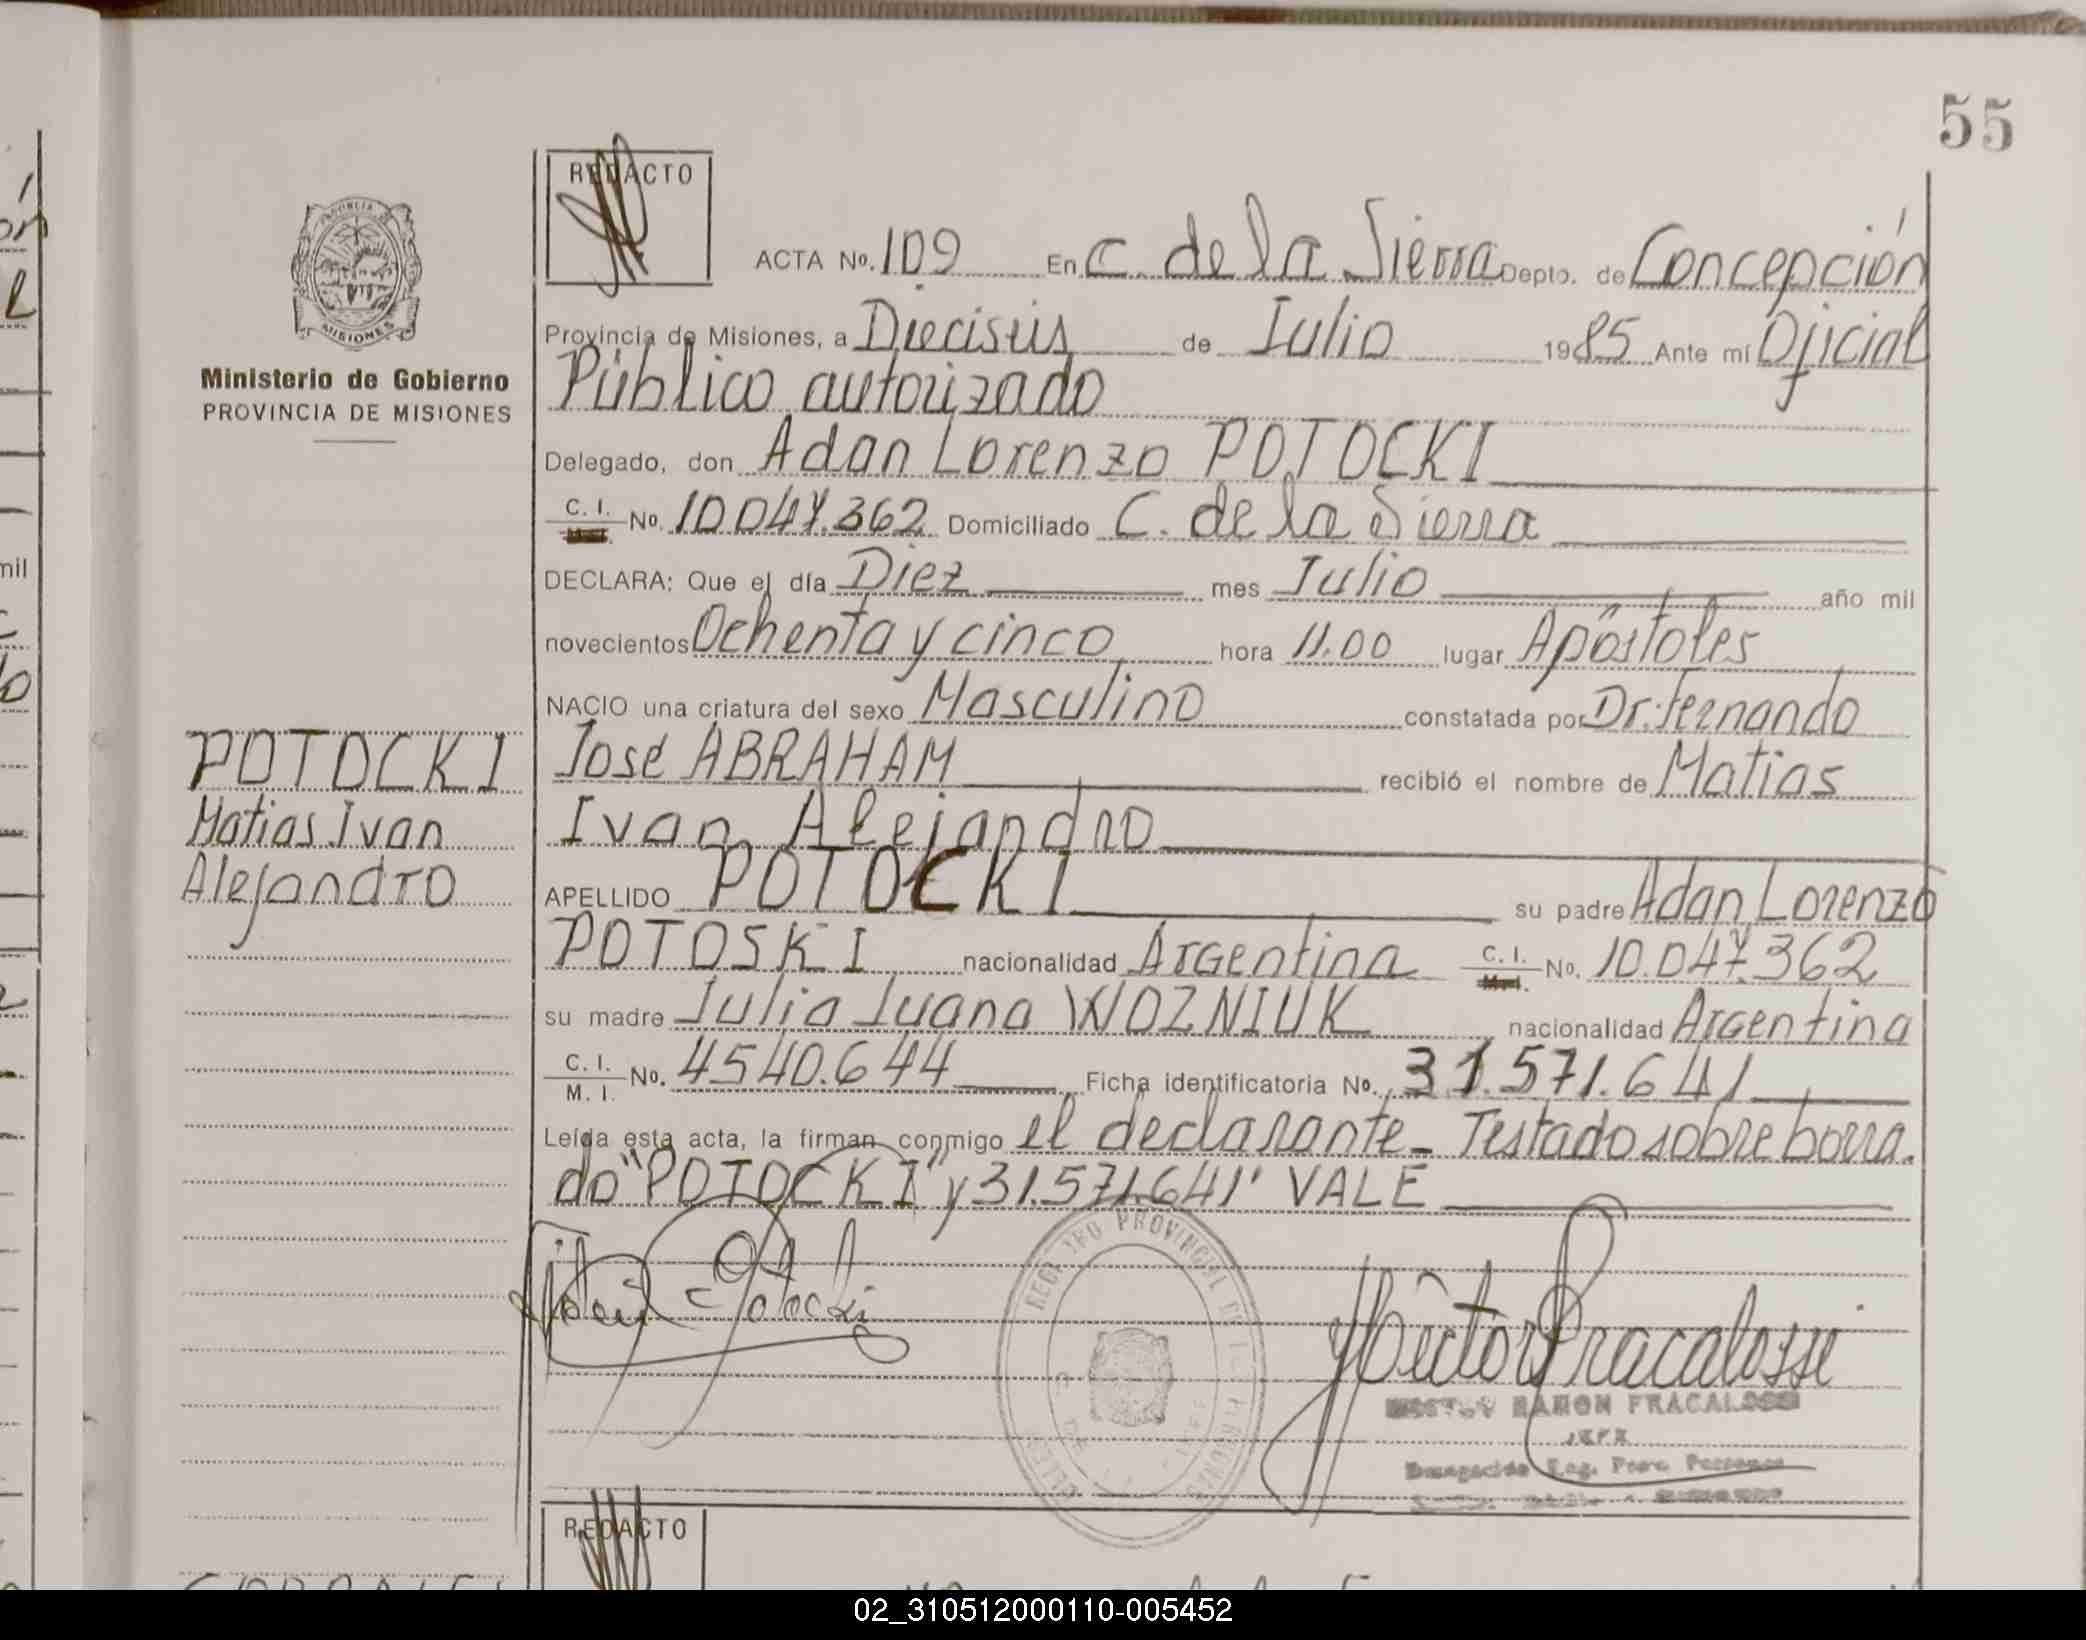 55
REDACTO
ACTA No. 109 En C. de la Sierra Depto. de Concepción
Provincia de Misiones, a Dieciseis de Julio 1985 Ante mí Oficial
Público autorizado
Delegado, don Adan Lorenzo POTOCKI
C. I. No. 10.047.362 Domiciliado C. de la Sierra
DECLARA: Que el día Diez mes Julio año mil
novecientos Ochenta y cinco hora 11.00 lugar Apóstoles
NACIO una criatura del sexo Masculino constatada por Dr. Fernando
José ABRAHAM recibió el nombre de Matias
Ivan Alejandro
APELLIDO POTOCKI su padre Adan Lorenzo
POTOSKI nacionalidad Argentina C. I. No. 10.047.362
su madre Julia Juana WOZNIUK nacionalidad Argentina
C. I. M. I. No. 4540.644 Ficha identificatoria No. 31.571.641
Leída esta acta, la firman conmigo el declarante - Testado sobre borra.
do "POTOCKI" y 31.571.641" VALE
PROVINCIA DE
MISIONES
Ministerio de Gobierno
PROVINCIA DE MISIONES
POTOCKI
Matias Ivan
Alejandro
Potocki
REGISTRO PROVINCIAL DE LAS PERSONAS
Hector Fracalossi
HECTOR RAMON FRACALOSSI
JEFE
REDACTO
02_310512000110-005452